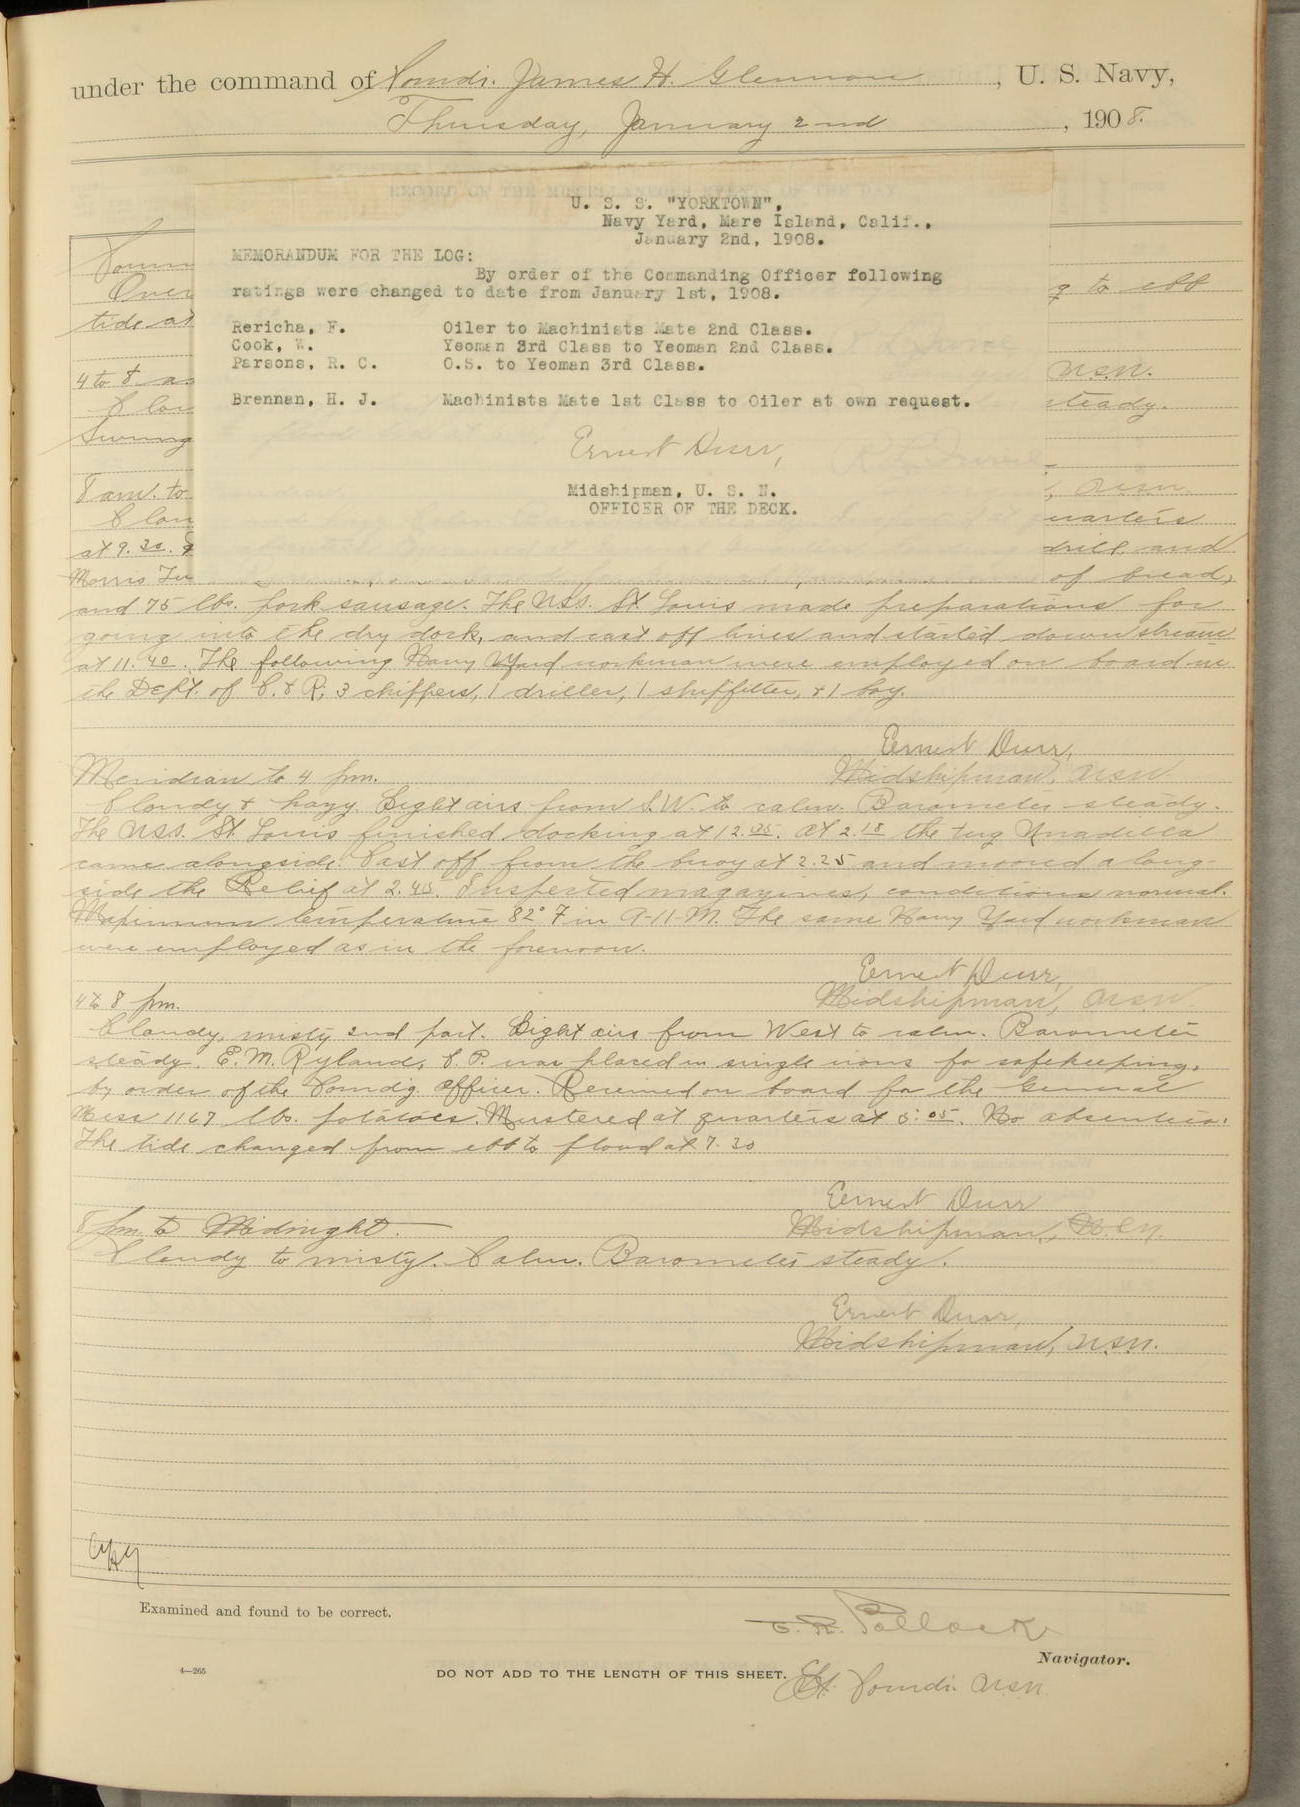 under the command of Comdr. James H. Glennon, U. S. Navy,
Thursday, January 2nd, 1908.
U. S. S. "YORKTOWN",
Navy Yard, Mare Island, Calif.,
January 2nd, 1908.
MEMORANDUM FOR THE LOG:
By order of the Commanding Officer following
ratings were changed to date from January 1st, 1908.
Rericha, F. Oiler to Machinists Mate 2nd Class.
Cook, W. Yeoman 3rd Class to Yeoman 2nd Class.
Parsons, R. C. O.S. to Yeoman 3rd Class.
Brennan, H. J. Machinists Mate 1st Class to Oiler at own request.
Ernest Durr,
Midshipman, U. S. N.
OFFICER OF THE DECK.
Over to ebb
tide at
4 to 8 U.S.N.
steady.
Swung
8 am. to U.S.N.
quarters
at 9.30. drill and
Morris of bread,
and 75 lbs. pork sausage. The U.S.S. St. Louis made preparations for
going into the dry dock, and cast off lines and started down stream
at 11.40. The following Navy Yard workman were employed on board in
the Dept. of C. & R; 3 chippers, 1 driller, 1 shipfitter, & 1 boy.
Ernest Durr,
Midshipman, U.S.N.
Meridian to 4 pm.
Cloudy & hazy. Light airs from S.W. to calm. Barometer steady.
The U.S.S. St. Louis finished docking at 12.25. At 2.18 the tug Unadilla
came alongside. Cast off from the buoy at 2.25 and moored along-
side the Relief at 2.45. Inspected magazines, conditions normal.
Maximum temperature 82° F in A-11-M. The same Navy Yard workman
were employed as in the forenoon.
Ernest Durr,
Midshipman, U.S.N.
4 to 8 pm.
Cloudy, misty 2nd part. Light airs from West to calm. Barometer
steady. E. M. Ryland, C. P. was placed in single irons for safekeeping,
by order of the Comdg. Officer. Received on board for the General
Mess 1167 lbs. potatoes. Mustered at quarters at 5:05. No absentees.
The tide changed from ebb to flood at 7.30
Ernest Durr
Midshipman, U.S.N.
8 pm. to Midnight.
Cloudy to misty. Calm. Barometer steady.
Ernest Durr,
Midshipman, U.S.N.
Examined and found to be correct.
E. R. Pollock
Navigator.
4—265
DO NOT ADD TO THE LENGTH OF THIS SHEET.
Lt. Comdr. U.S.N.